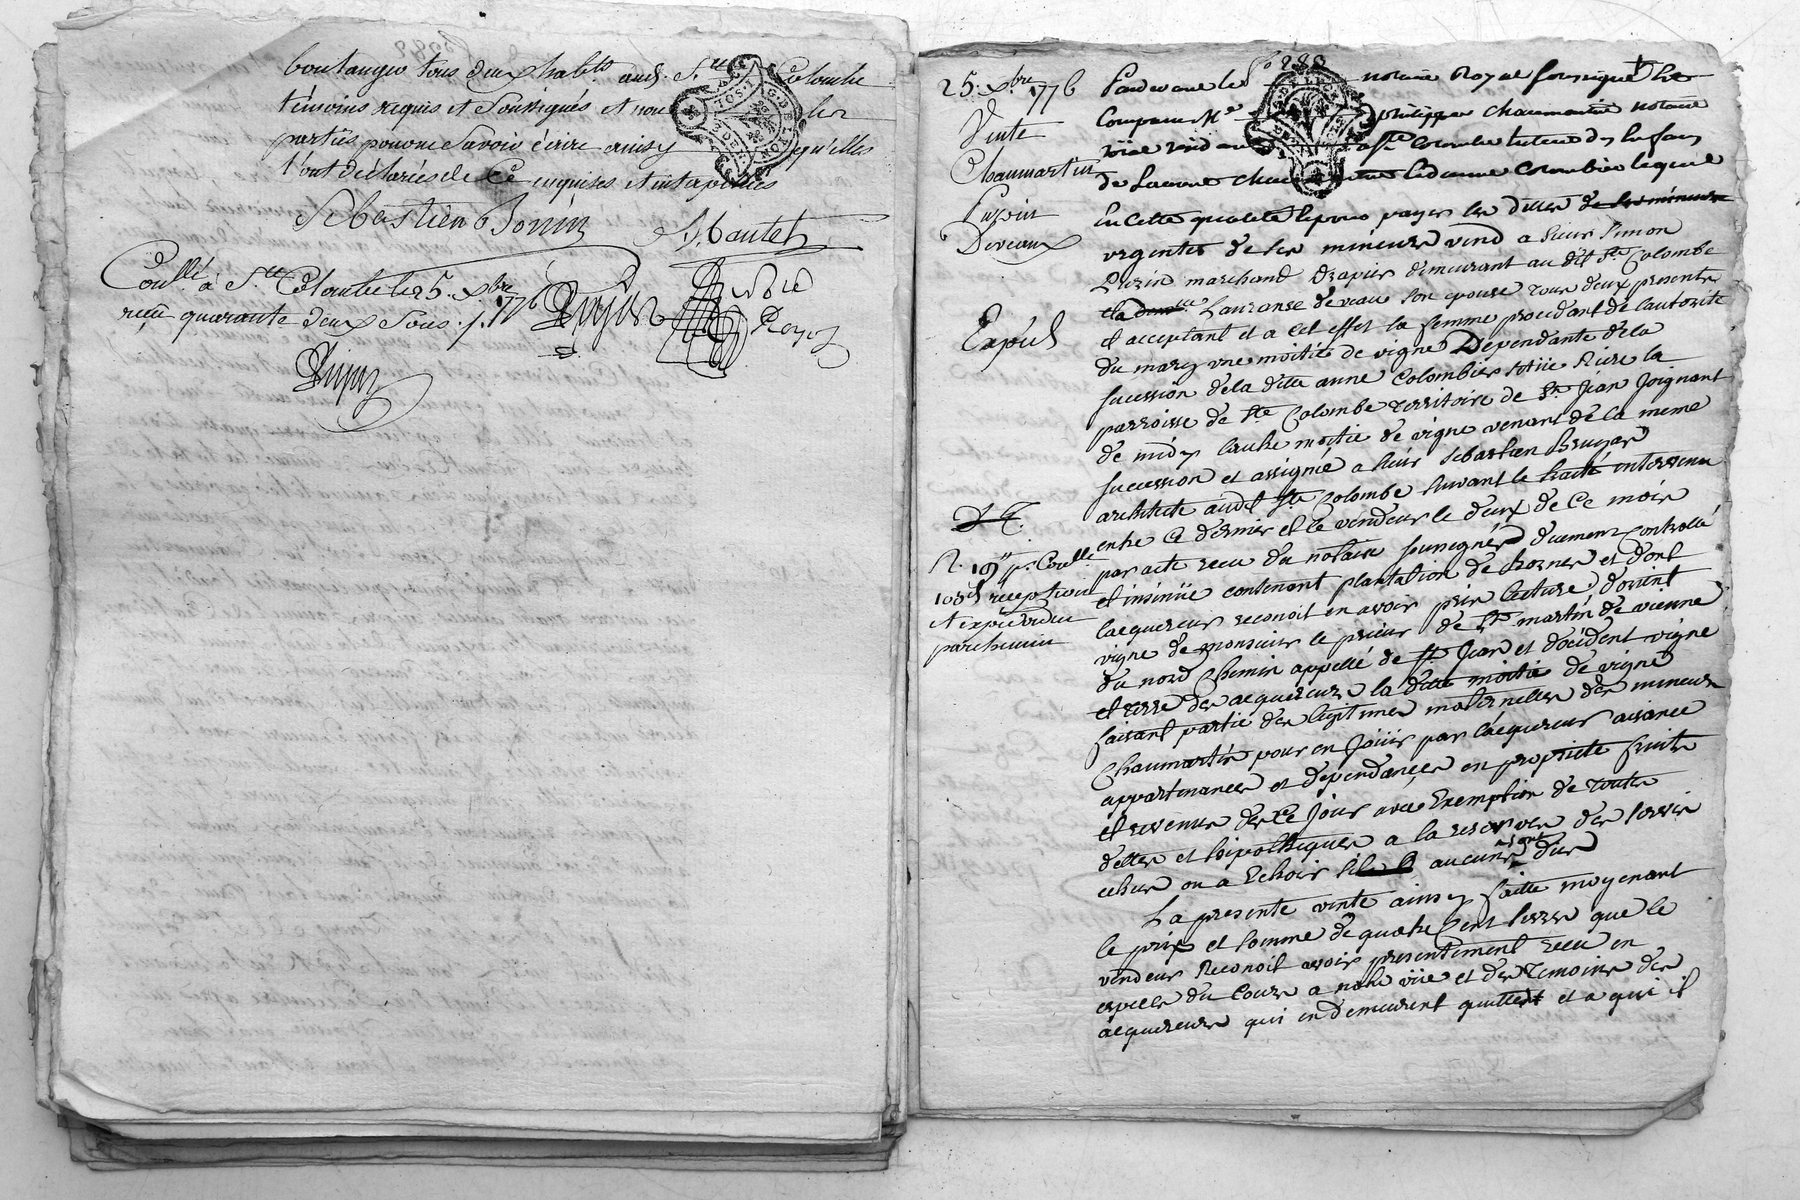 boulanger tous deux habts audt. Ste Colombe
témoins requis et soussignés et non les
parties pour ne savoir écrire ainsy qu'elles
l'ont déclarés de ce enquises et interpellées
Sebastien Bonin
Contllé à Ste Colombe le 25. xbre 1776
reçu quarante deux sous
fo 283
25. xbre 1776
Vente
Chaumartin
Puzin
Deveaux
Expéd
R. 10lt pr. Contlle
réception
et expédition
parchemin
Pardevant le notaire Royal soussigné
Comparu Me philippe Chaumartin notaire
Ste Colombe tuteur des Enfans
anne Colombier lequel
En cette qualité pour payer les dettes de ses mineurs
urgentes de ses mineurs vend a sieur simon
Puzin marchand Drapier demeurant au dit Ste Colombe
et a Lauranse deveau son epouse tous deux presents
et acceptant et a cet effet la femme procedant de l'autorité
du mary une moitié de vigne Dependante de la
sucession de la ditte anne Colombier située Riere la
parroisse de Ste Colombe territoire de St Jean Joignant
de midy l'autre moitié de vigne venant de la meme
sucession et assigné a sieur sebastien Bruyas
architecte audit Ste Colombe suivant le traité intervenu
entre ce dernier et le vendeur le deux de ce mois
par acte recu du notaire soussigné duement Controllé
et insinüé contenant plantation de bornes et dont
l'acquereur reconoit en avoir pris lecture, d'orient
vigne de monsieur le prieur de St martin de vienne
du nord Chemin appellé de St Jean et d'occident vigne
et terre des acquereurs la ditte moitié de vigne
faisant partie des legitimes maternelles des mineurs
Chaumartin pour en Joüir par l'acquereur aisance
appartenances et dependances en proprieté fruits
et revenus des ce Jour avec Exemption de toutes
dettes et hipothèques a la reserve des servis
echus ou a Echoir aucuns sont dus
La presente vente ainsy faitte moyenant
le prix et somme de quatre Cent livres que le
vendeur Reconoit avoir presentement recu en
especes du Cours a notre vüe et des temoins des
acquereurs qui en demeurent quittes et a qui il